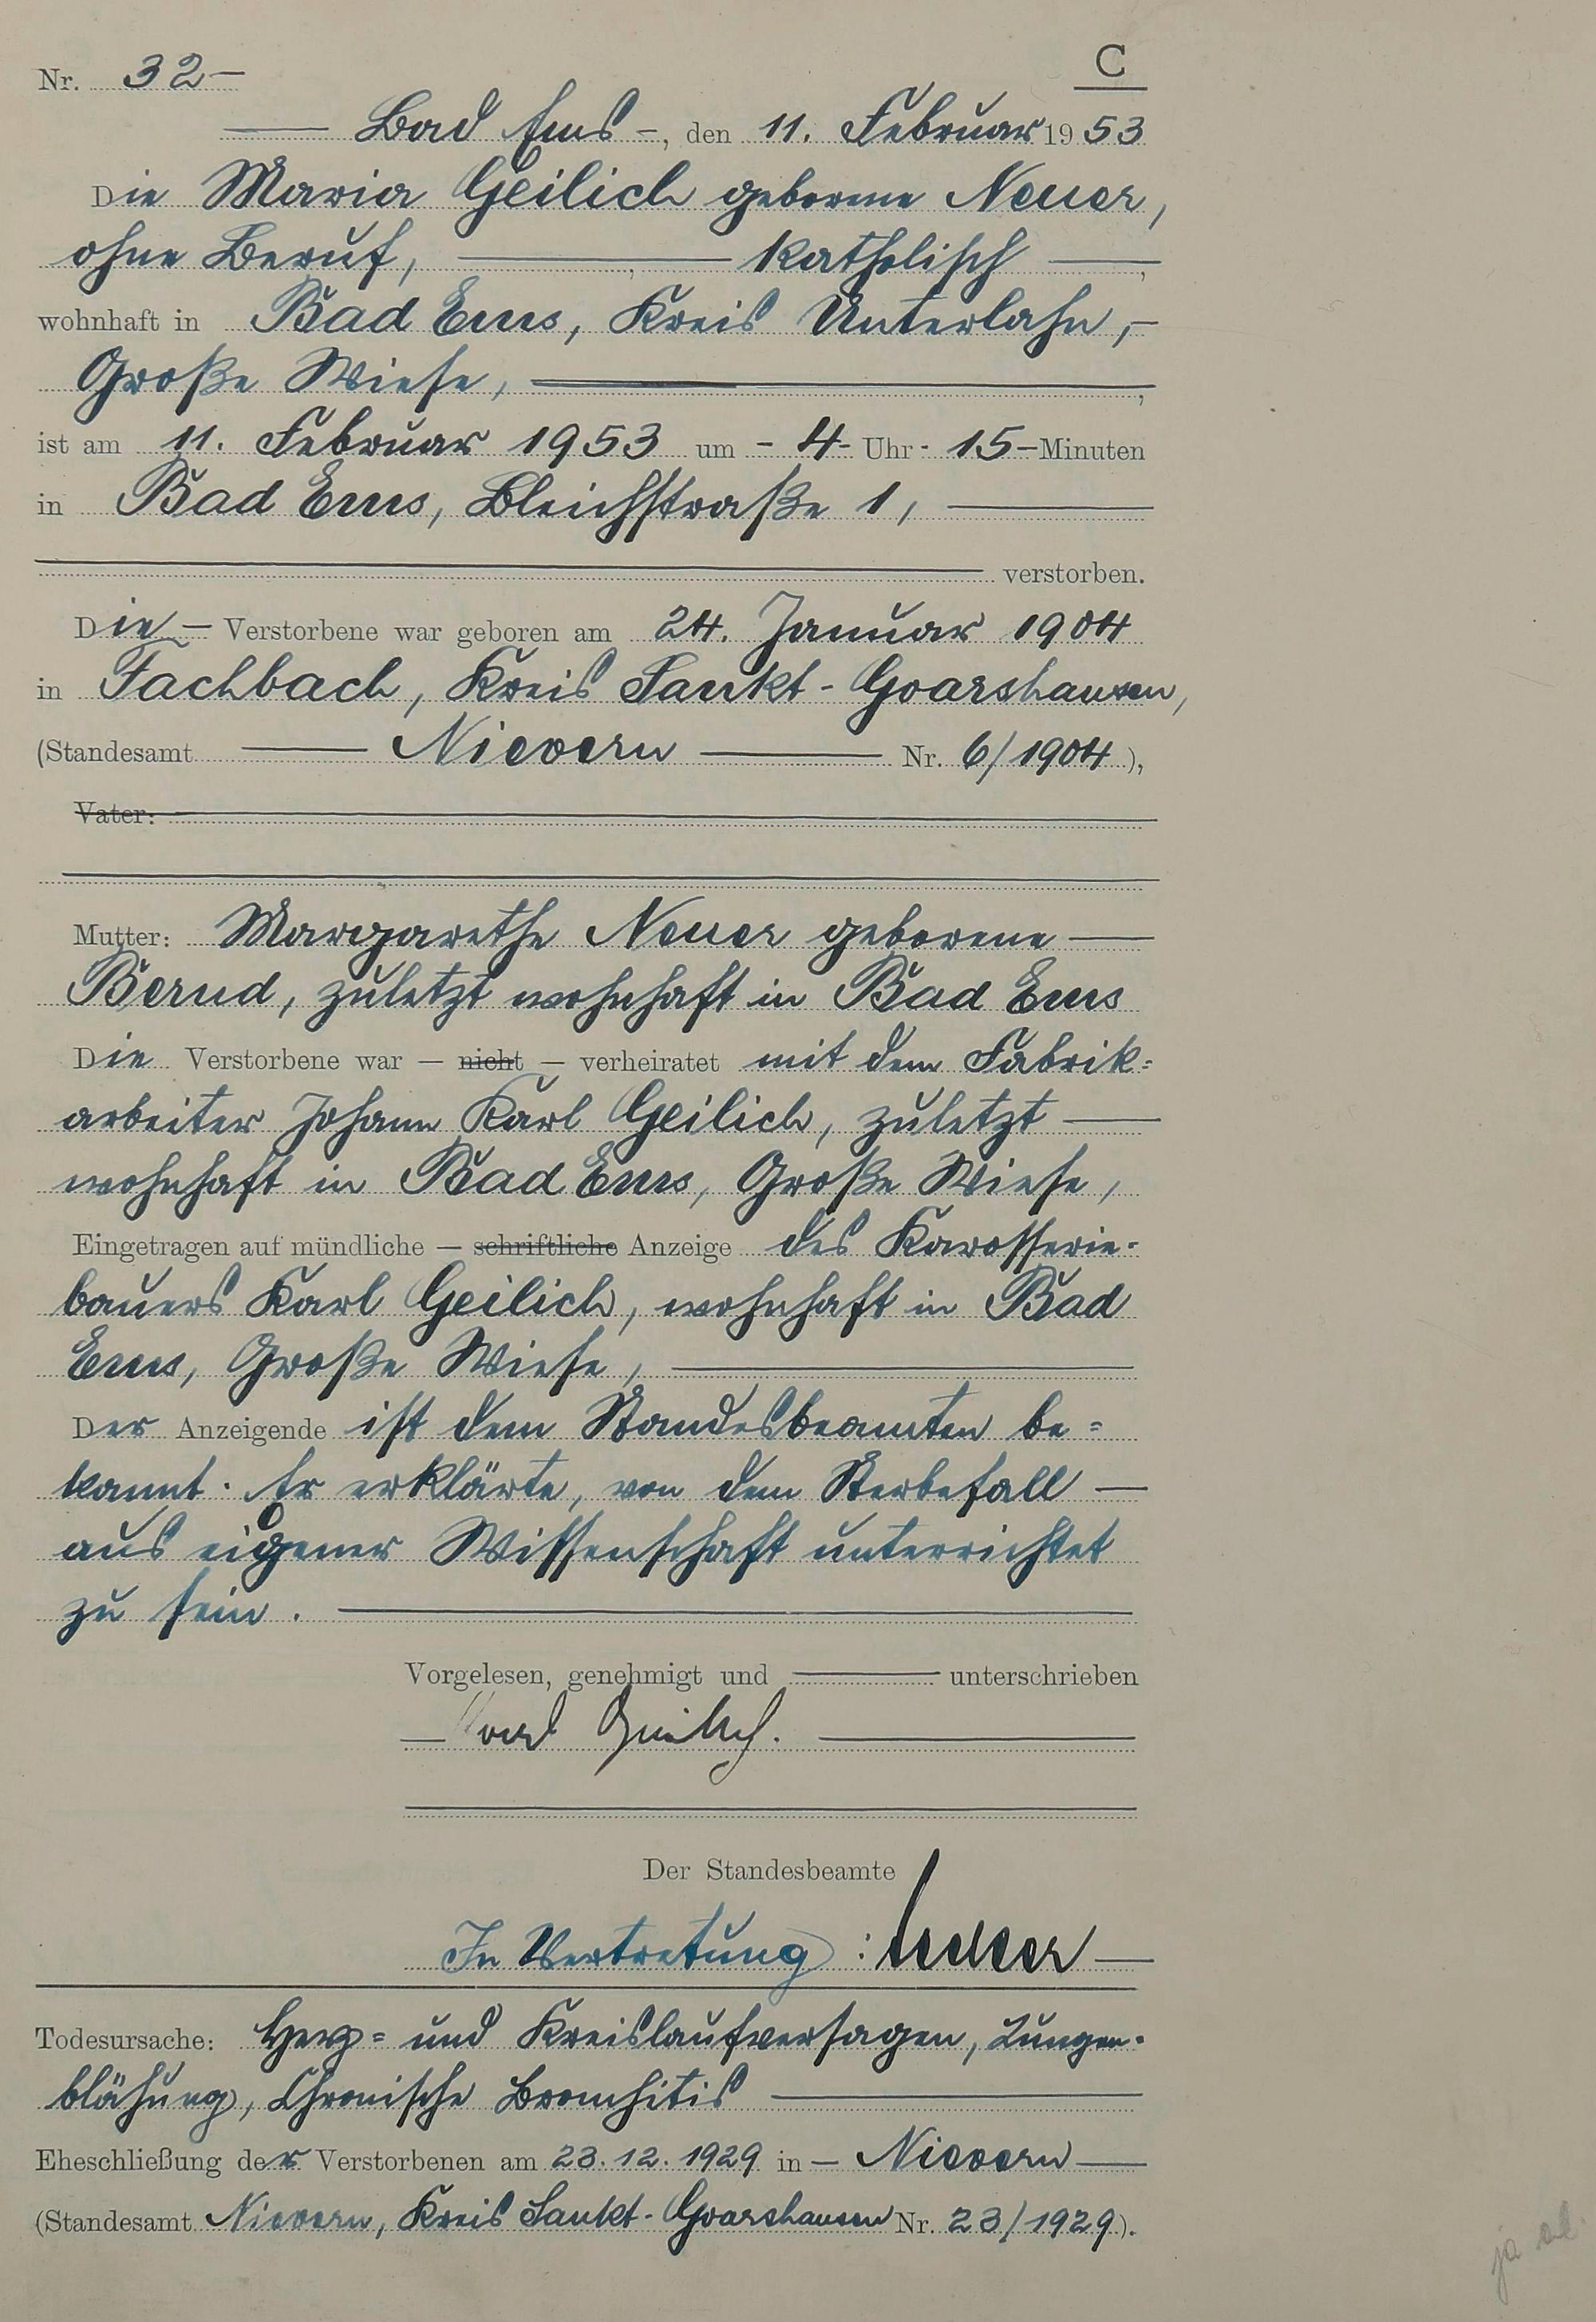 Nr. 32 –
C
—— Bad Ems –, den 11. Februar 1953
Die Maria Geilich geborene Neuer,
ohne Beruf, ——, —— katholisch ——,
wohnhaft in Bad Ems, Kreis Unterlahn, –
Große Wiese, ——,
ist am 11. Februar 1953 um – 4 – Uhr – 15 – Minuten
in Bad Ems, Bleichstraße 1, ——
—— verstorben.
Die – Verstorbene war geboren am 24. Januar 1904
in Fachbach, Kreis Sankt-Goarshausen,
(Standesamt —— Nievern —— Nr. 6/1904),
Vater: ——
Mutter: Margarethe Neuer geborene ——
Bernd, zuletzt wohnhaft in Bad Ems
Die Verstorbene war – nicht – verheiratet mit dem Fabrik=
arbeiter Johann Karl Geilich, zuletzt ——
wohnhaft in Bad Ems, Große Wiese,
Eingetragen auf mündliche – schriftliche Anzeige des Karosserie-
bauers Karl Geilich, wohnhaft in Bad
Ems, Große Wiese, ——
Der Anzeigende ist dem Standesbeamten be=
kannt. Er erklärte, von dem Sterbefall —
aus eigener Wissenschaft unterrichtet
zu sein. ——
Vorgelesen, genehmigt und —— unterschrieben
— Karl Geilich. ——
Der Standesbeamte
In Vertretung :
Todesursache: Herz= und Kreislaufversagen, Lungen-
blähung, Chronische Bronchitis ——
Eheschließung der Verstorbenen am 23.12.1929 in – Nievern ——
(Standesamt Nievern, Kreis Sankt-Goarshausen Nr. 23/1929).